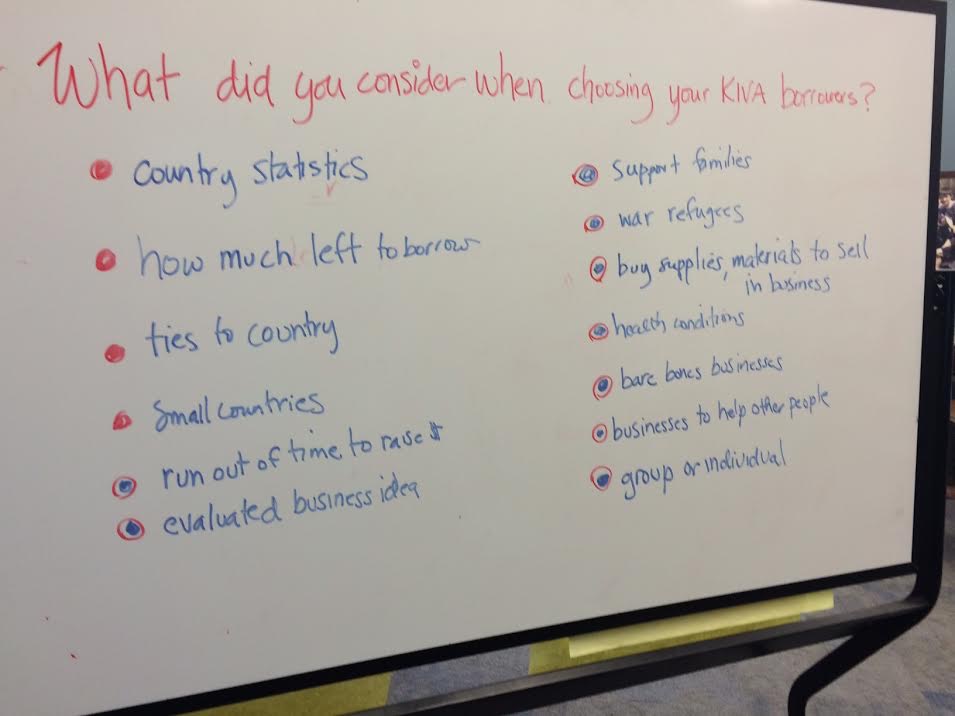 What did you consider when choosing your KIVA borrowers?
country statistics
how much left to borrow
ties to country
small countries
run out of time to raise $
evaluated business idea
support families
war refugees
buy supplies, materials to sell
in business
health conditions
bare bones businesses
businesses to help other people
group or individual